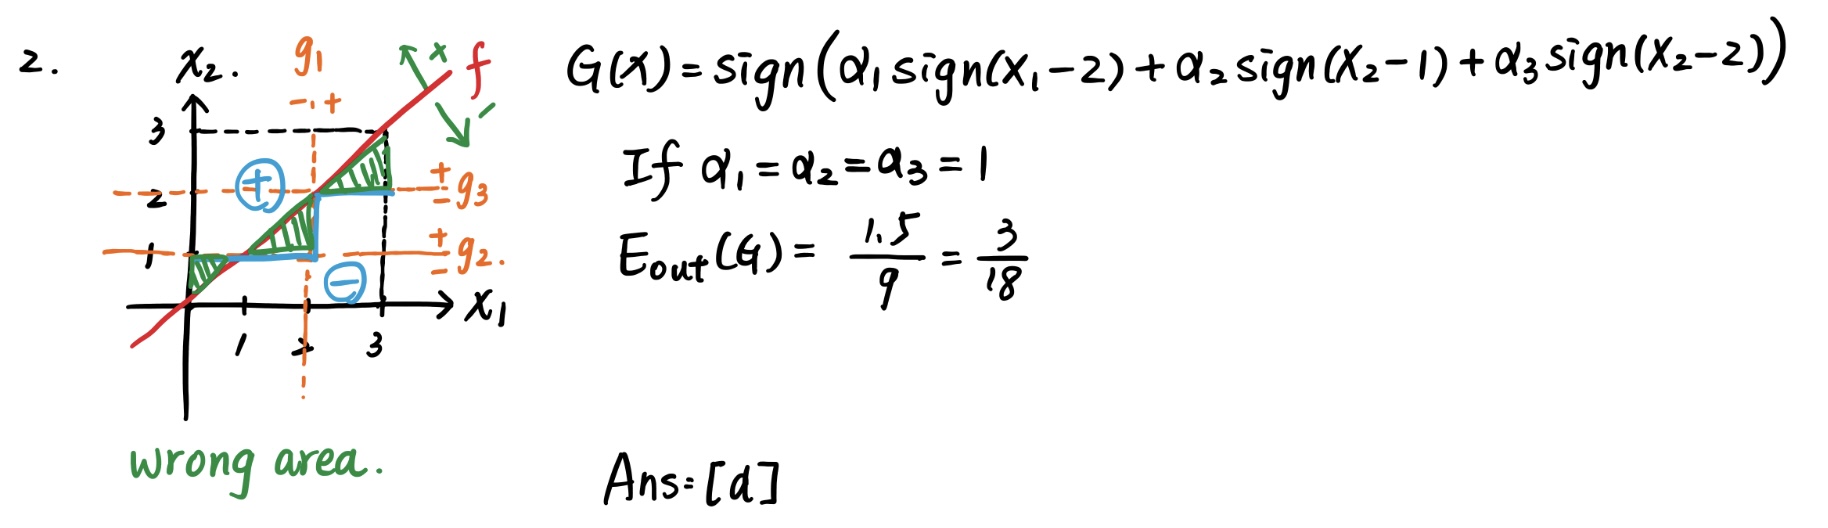 2.
x₂.
g₁
-.+
+
f
-
3
2
1
+
±
- g₃
+
- g₂.
⊕
⊖
x₁
1 2 3
wrong area.
G(x) = sign(α₁ sign(x₁-2) + α₂ sign(x₂-1) + α₃ sign(x₂-2))
If α₁ = α₂ = α₃ = 1
Eout(G) = 1.5/9 = 3/18
Ans=[d]